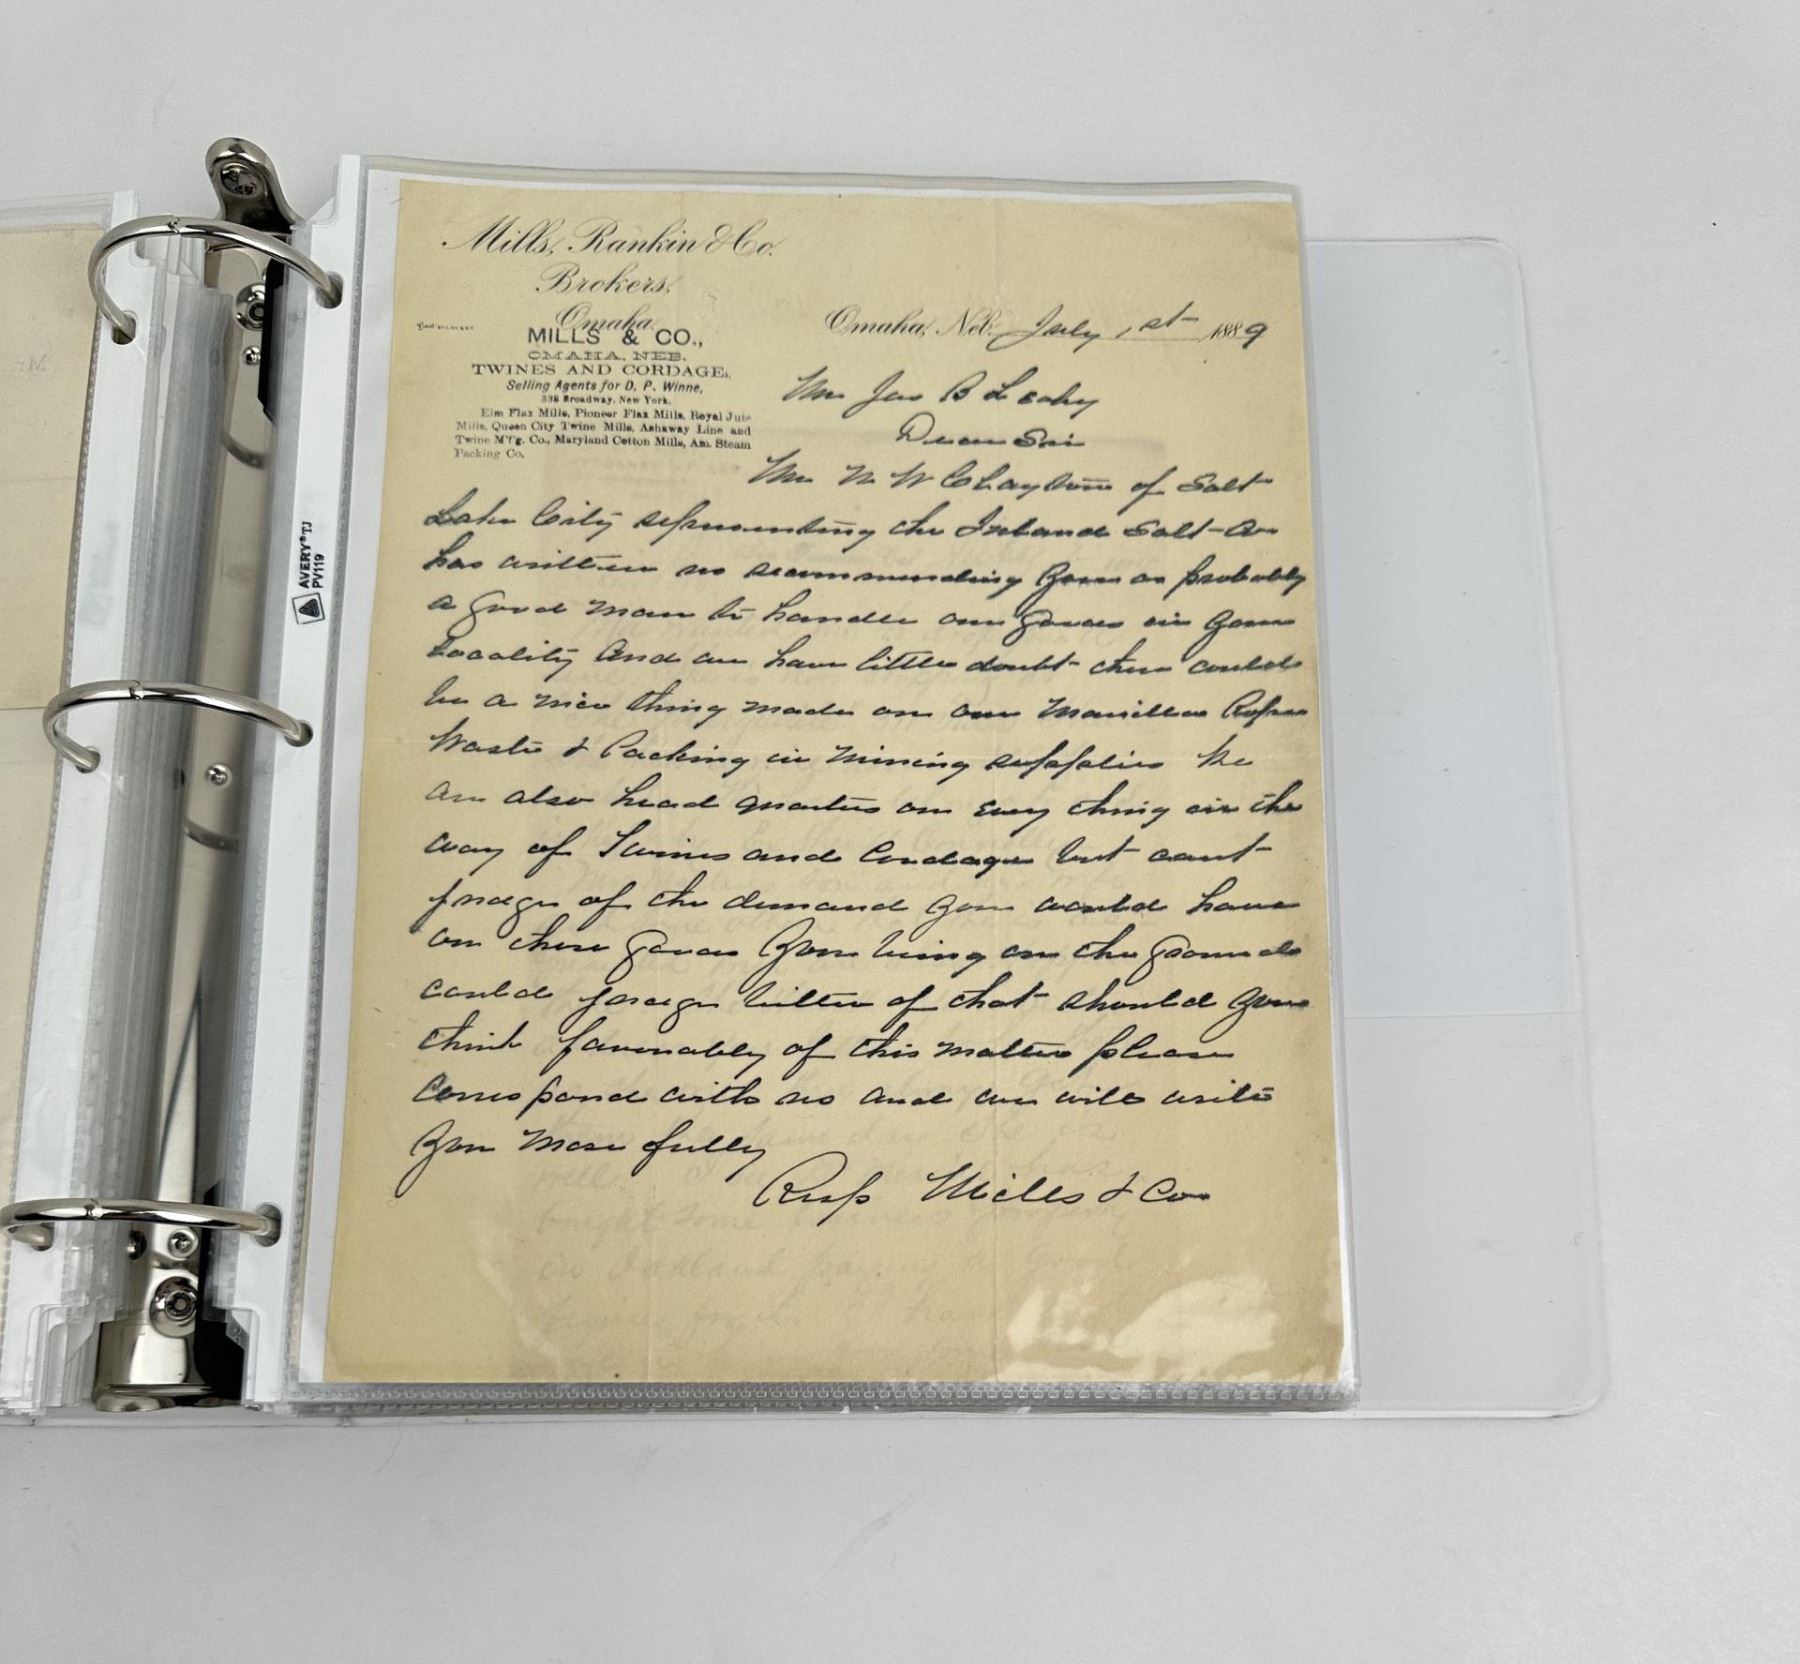 Mills, Rankin & Co.
Brokers,
Omaha.
MILLS & CO.,
OMAHA, NEB.
TWINES AND CORDAGE,
Selling Agents for D. P. Winne,
338 Broadway, New York.
Elm Flax Mills, Pioneer Flax Mills, Royal Jute
Mills, Queen City Twine Mills, Ashaway Line and
Twine M'f'g. Co., Maryland Cotton Mills, Am. Steam
Packing Co.
Omaha, Neb. July 1st 1889
Mr Jas B Leahy
Dear Sir
Mr N W Clayton of Salt
Lake City representing the Inland Salt Co
has written us recommending you as probably
a good man to handle our goods in your
locality and we have little doubt there could
be a nice thing made on our Manilla Rope
Waste & Packing in mining supplies We
are also head quarters on every thing in the
way of Twines and Cordage but cant
judge of the demand you would have
on these goods You being on the grounds
could judge better of that should you
think favorably of this matter please
correspond with us and we will write
you more fully
Resp Mills & Co
AVERY® TJ
PV119